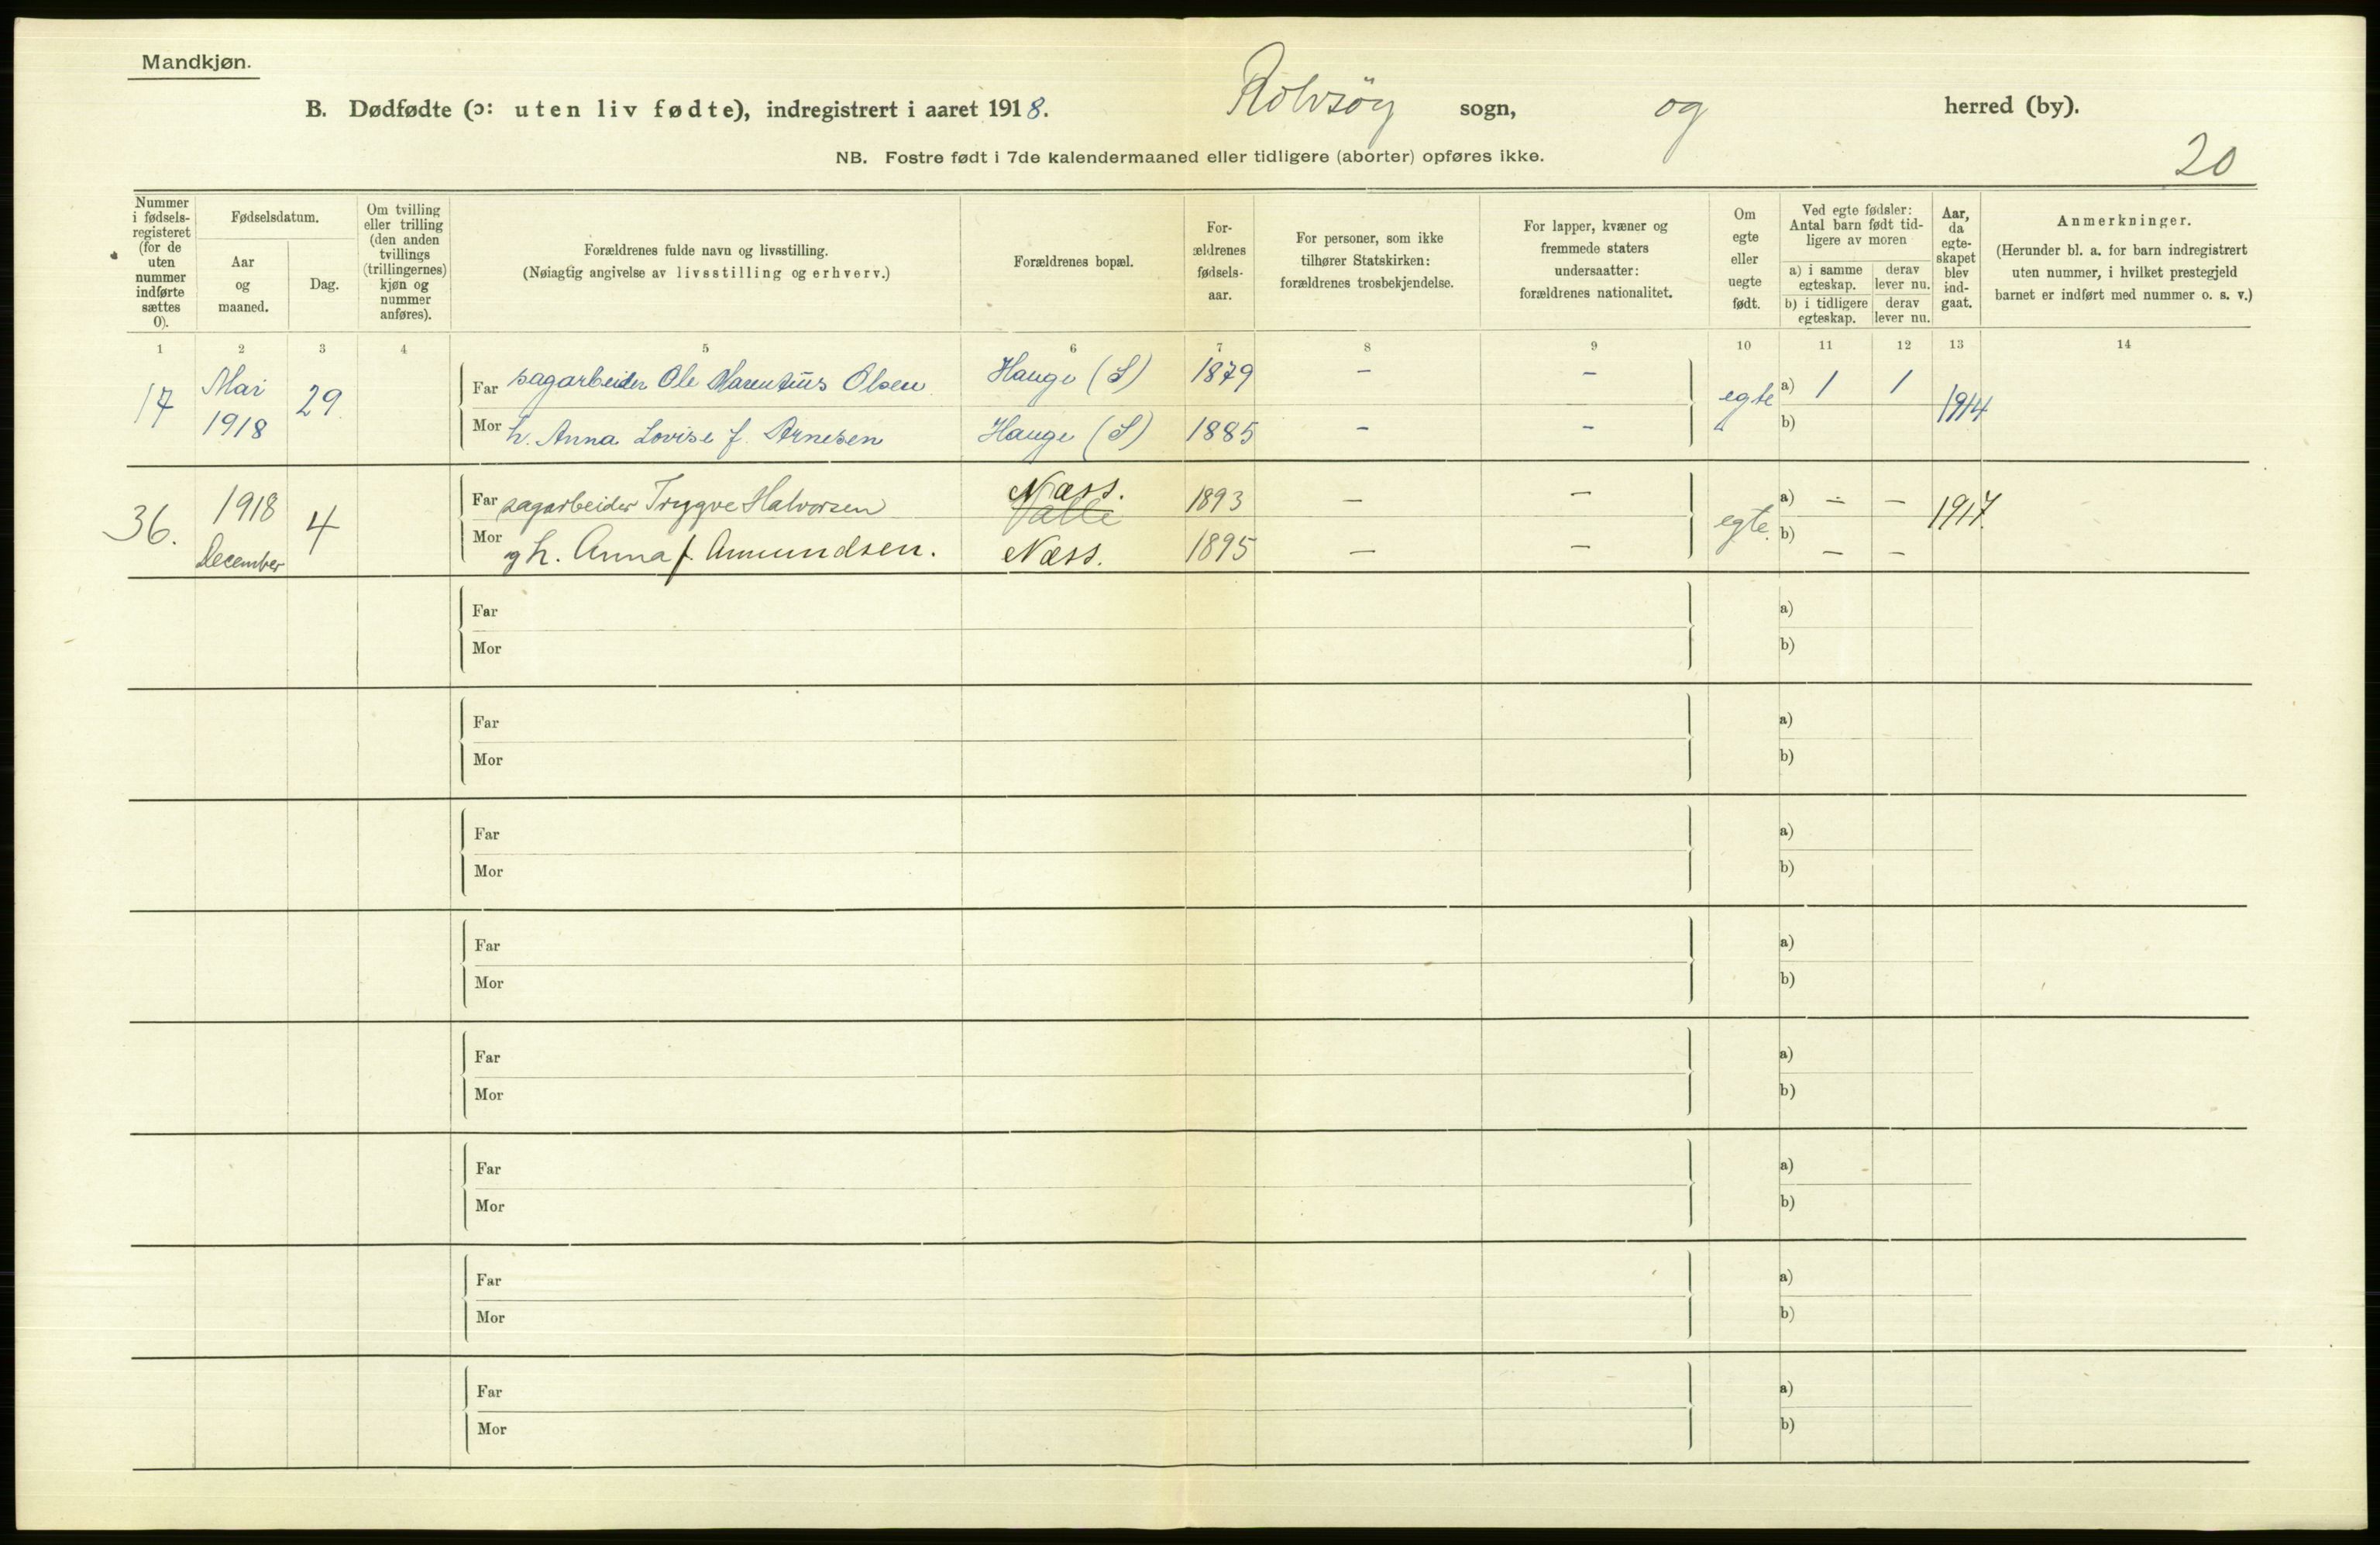 Mandkjøn.
B. Dødfødte (ɔ: uten liv fødte), indregistrert i aaret 1918. Rolvsöy sogn, og herred (by).
NB. Fostre født i 7de kalendermaaned eller tidligere (aborter) opføres ikke.
20
Nummer i fødsels- registeret (for de uten nummer indførte sættes 0).
Fødselsdatum.
Aar og maaned.
Dag.
Om tvilling eller trilling (den anden tvillings (trillingernes) kjøn og nummer anføres).
Forældrenes fulde navn og livsstilling.
(Nøiagtig angivelse av livsstilling og erhverv.)
Forældrenes bopæl.
For- ældrenes fødsels- aar.
For personer, som ikke tilhører Statskirken: forældrenes trosbekjendelse.
For lapper, kvæner og fremmede staters undersaatter: forældrenes nationalitet.
Om egte eller uegte født.
Ved egte fødsler: Antal barn født tid- ligere av moren
a) i samme egteskap.
derav lever nu.
b) i tidligere egteskap.
derav lever nu.
Aar, da egte- skapet blev ind- gaat.
Anmerkninger.
(Herunder bl. a. for barn indregistrert uten nummer, i hvilket prestegjeld barnet er indført med nummer o. s. v.)
1 2 3 4 5 6 7 8 9 10 11 12 13 14
17 Mai 1918 29
Far sagarbeider Ole Marentius Olsen Hauge (S) 1879 – – egte a) 1 1 1914
Mor h. Anna Lovise f. Arnesen Hauge (S) 1885 – – b)
36. 1918 December 4
Far sagarbeider Trygve Halvorsen Næss. Valle 1893 – – egte. a) – – 1917.
Mor g h. Anna f. Amundsen. Næss. 1895 – – b) – –
Far a)
Mor b)
Far a)
Mor b)
Far a)
Mor b)
Far a)
Mor b)
Far a)
Mor b)
Far a)
Mor b)
Far a)
Mor b)
Far a)
Mor b)